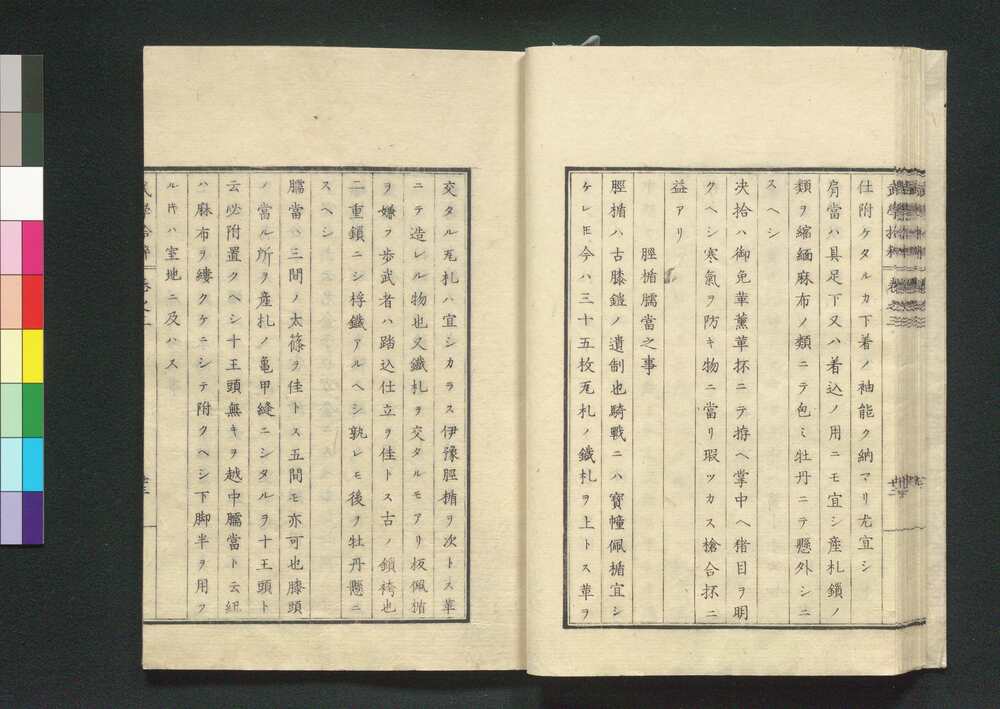 仕附ケタルカ下着ノ袖能ク納マリ尤宜シ
肩當ハ具足下又ハ着込ノ用ニモ宜シ産札鎖ノ
類ヲ縮緬麻布ノ類ニテ色ミ牡丹ニテ懸外シニ
スヘシ
决拾ハ御免革薫革抔ニテ拵ヘ掌中ヘ猪目ヲ明
クヘシ寒氣ヲ防キ物ニ當リ瑕ツカス槍合抔ニ
益アリ
脛楯臑當之事
脛楯ハ古膝鎧ノ遺制也騎戰ニハ寳幢佩楯宜シ
ケレ𪜈今ハ三十五枚㐂札ノ鐵札ヲ上トス革ヲ
交タル札ハ宜シカラス伊豫脛楯ヲ次トス革
ニテ造レル物也又鐵札ヲ交タルモアリ板佩楯
ヲ嫌フ歩武者ハ踏込仕立ヲ佳トス古ノ鎖袴也
二重鎖ニシ桴鐵アルヘシ孰レモ後ヲ牡丹懸ニ
スヘシ
臑當ハ三間ノ太篠ヲ佳トス五間モ亦可也膝頭
ノ當ル所ヲ産札ノ亀甲縫ニシタルヲ十王頭ト
云必附置クヘシ十王頭無キヲ越中臑當ト云紐
ハ麻布ヲ縷クケニシテ附クヘシ下脚半ヲ用フ
ル片ハ室地ニ及ハス